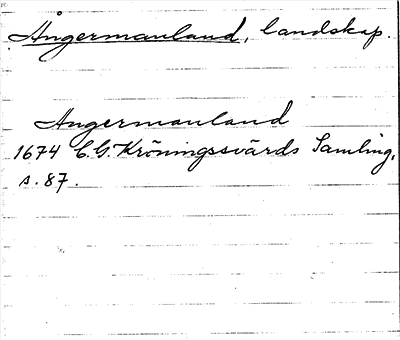 Ångermanland, landskap.
Angermanland
1674 C.G. Kröningssvärds Samling,
s. 87.